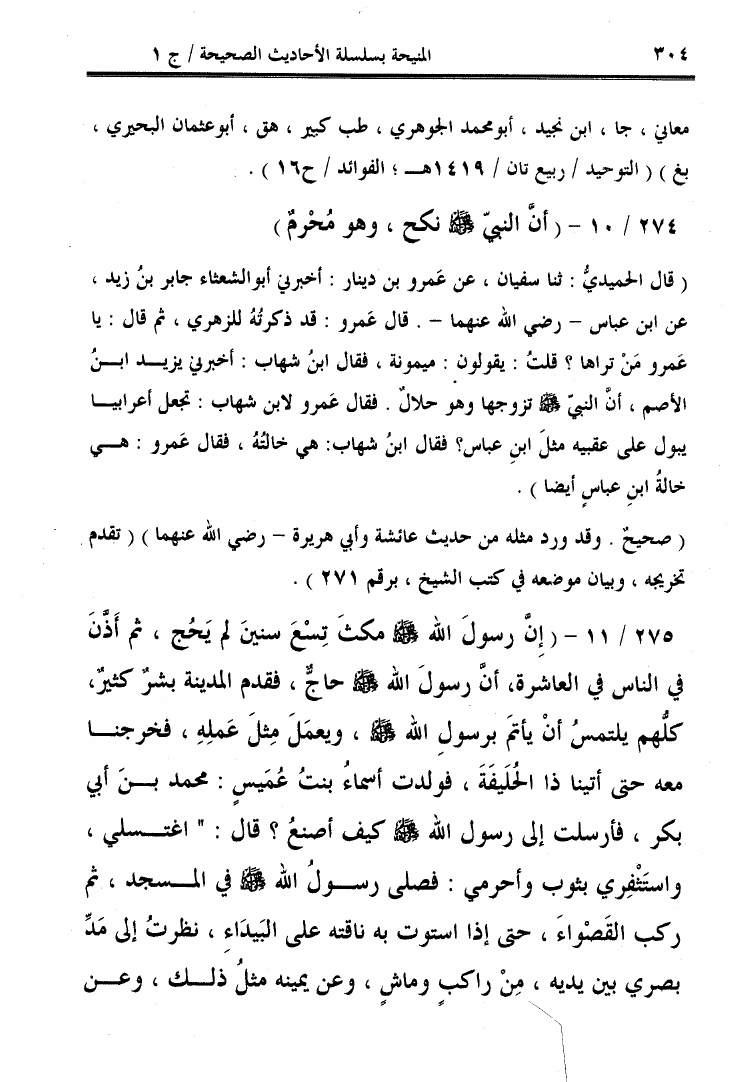 ٣٠٤ المنيحة بسلسلة الأحاديث الصحيحة / ج ١
معاني ، جا ، ابن نجيد ، أبومحمد الجوهري ، طب كبير ، هق ، أبوعثمان البحيري ،
بغ ) ( التوحيد / ربيع ثان / ١٤١٩هـ ؛ الفوائد / ح١٦ ) .
٢٧٤ / ١٠ - ( أنَّ النبيّ ﷺ نكح ، وهو مُحْرِمٌ )
( قال الحميديُّ : ثنا سفيان ، عن عَمرو بن دينار : أخبرني أبوالشعثاء جابر بنُ زيد ،
عن ابن عباس – رضي الله عنهما – . قال عَمرو : قد ذكرتُهُ للزهري ، ثم قال : يا
عَمرو مَنْ تراها ؟ قلتُ : يقولون : ميمونة ، فقال ابنُ شهاب : أخبرني يزيــد ابــنُ
الأصم ، أنَّ النبيّ ﷺ تزوجها وهو حلالٌ . فقال عَمرو لابن شهاب : تجعل أعرابيــا
يبول على عقبيه مثلَ ابنِ عباس؟ فقال ابنُ شهاب: هي خالتُهُ ، فقال عَمرو : هــي
خالةُ ابنِ عباسٍ أيضا ) .
( صحيحٌ . وقد ورد مثله من حديث عائشة وأبي هريرة – رضي الله عنهما ) ( تقدم
تخريجه ، وبيان موضعه في كتب الشيخ ، برقم ٢٧١ ) .
٢٧٥ / ١١ - ( إنَّ رسولَ الله ﷺ مكثَ تِسْعَ سنينَ لم يَحُج ، ثم أَذَّنَ
في الناس في العاشرة، أنَّ رسولَ الله ﷺ حاجٌّ ، فقدم المدينة بشرٌ كثيرٌ،
كلُّهم يلتمسُ أنْ يأتمَ برسولِ الله ﷺ ، ويعمَلَ مِثلَ عَملِهِ ، فخرجنــا
معه حتى أتينا ذا الحُلَيفَةَ ، فولدت أسماءُ بنتُ عُمَيسٍ : محمد بــنَ أبي
بكر ، فأرسلت إلى رسول الله ﷺ كيف أصنعُ ؟ قال : " اغتــسلي ،
واستَثْفِري بثوب وأحرمي : فصلى رســولُ الله ﷺ في المــسجد ، ثم
ركب القَصْواءَ ، حتى إذا استوت به ناقته على البَيدَاءِ ، نظرتُ إلى مَدِّ
بصري بين يديه ، مِنْ راكبٍ وماشٍ ، وعن يمينه مثلُ ذلــك ، وعــن